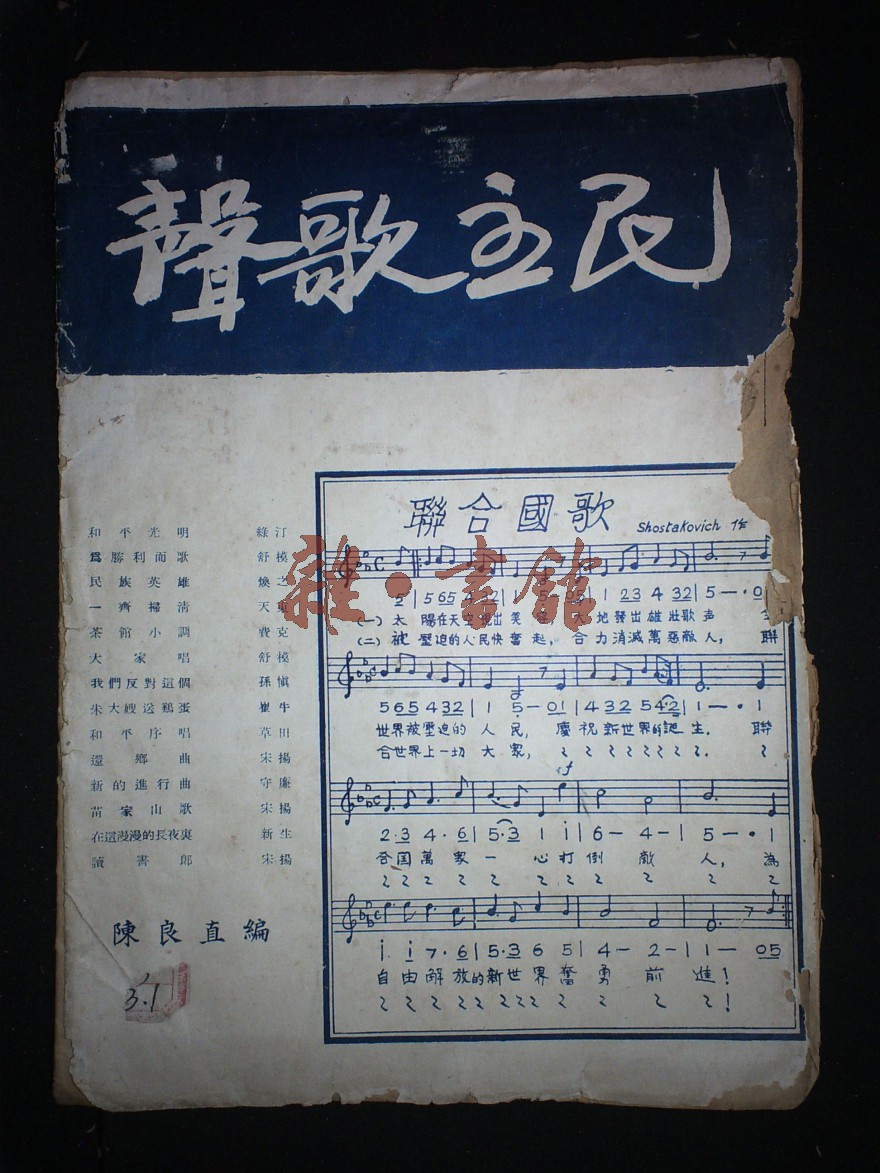 民主歌聲
和平光明 綠汀
爲勝利而歌 舒模
民族英雄 煥之
一齊掃清 天
茶館小調 費克
大家唱 舒模
我們反對這個 孫愼
朱大嫂送鷄蛋 崔牛
和平序唱 草田
還鄉曲 宋揚
新的進行曲 守廉
苗家山歌 宋揚
在這漫漫的長夜裏 新生
讀書郎 宋揚
陳良直編
3.1
聯合國歌
Shostakovich 作
5 | 5 65 4 32 | 1 5 | 1 23 4 32 | 5 — · 0
(一) 太陽在天空 出 大地發出雄壯歌声
(二) 被壓迫的人民快奮起, 合力消滅萬惡敵人, 聯
5 65 4 32 | 1 5 — 01 | 4 32 5 4·2 | 1 — · 1
世界被壓迫的人民, 慶祝新世界的誕生. 聯
合世界上一切大家,
sf
2·3 4·6 | 5·3 1 i | 6 — 4 — | 5 — · 1
合国萬家一心打倒敵人, 為
i· i 7·6 | 5·3 6 5 | 4 — 2 — | 1 — 05
自由解放的新世界奮勇前進!
雜·書館